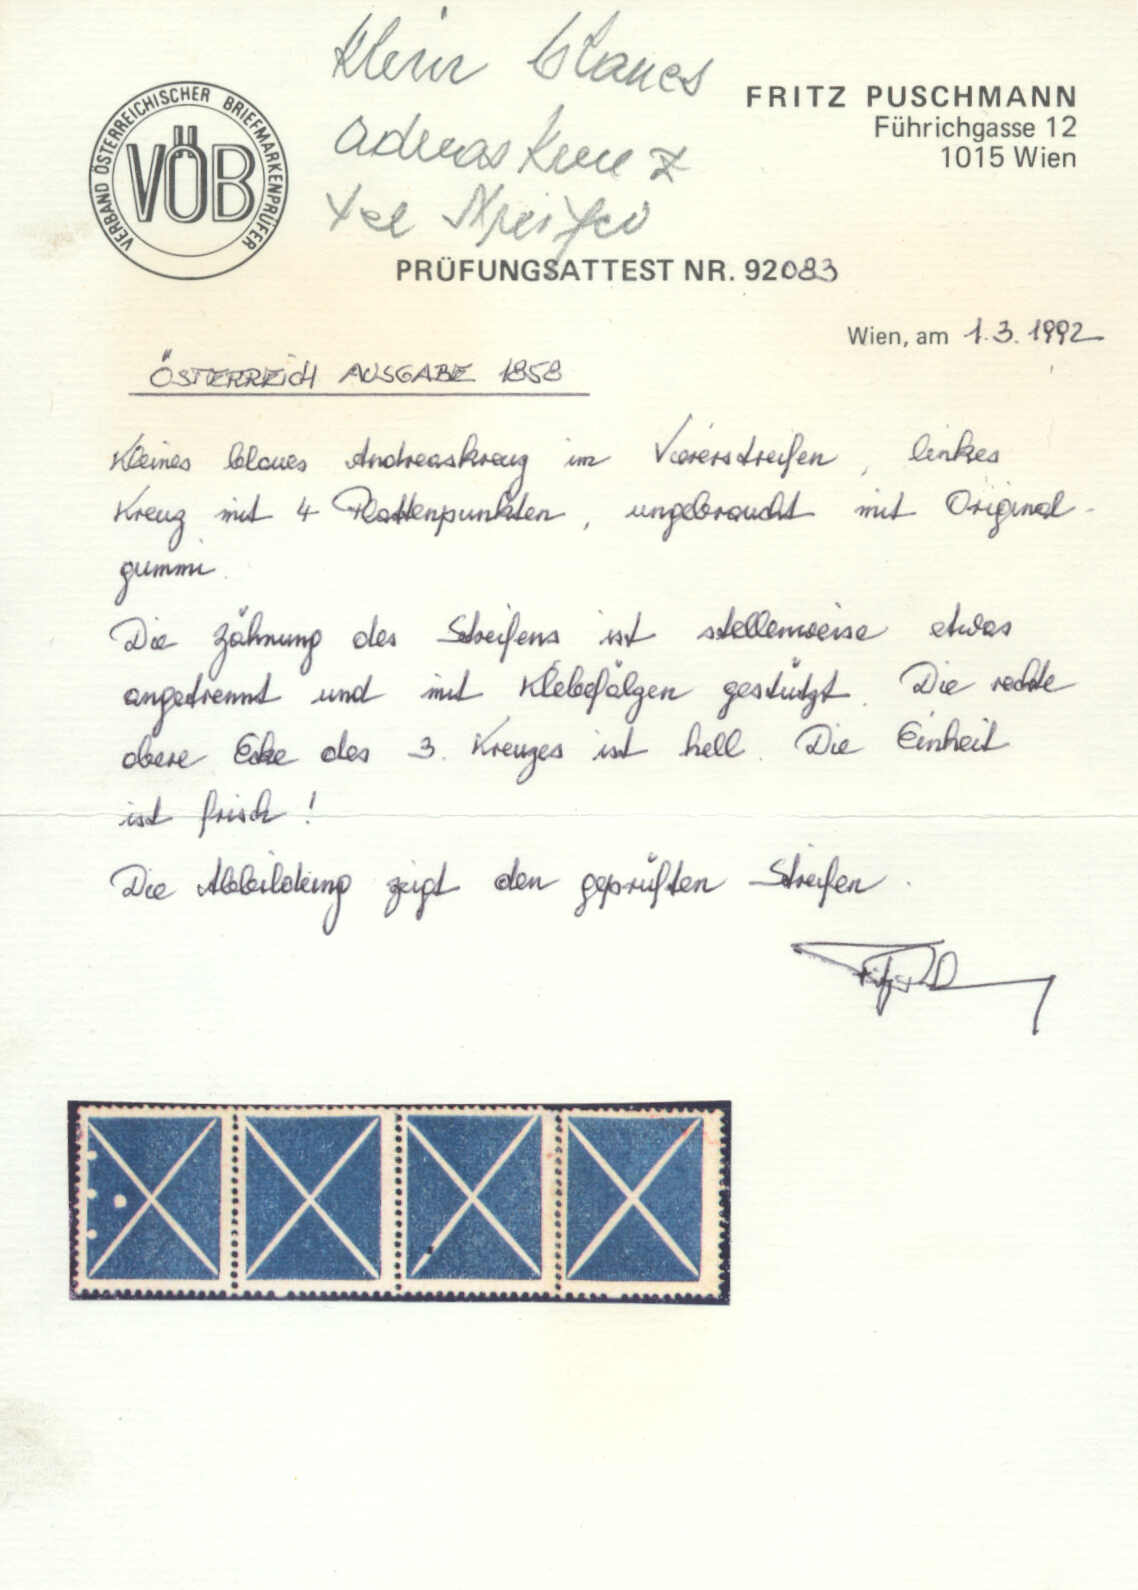 Klein blaues
VERBAND ÖSTERREICHISCHER BRIEFMARKENPRÜFER
VÖB
FRITZ PUSCHMANN
Führichgasse 12
1015 Wien
PRÜFUNGSATTEST NR. 92083
Wien, am 1.3.1992
ÖSTERREICH AUSGABE 1858
Kleines blaues Andreaskreuz im Viererstreifen, linkes
Kreuz mit 4 Plattenpunkten, ungebraucht mit Original-
gummi.
Die Zähnung des Streifens ist stellenweise etwas
angetrennt und mit Klebefälzen gestützt. Die rechte
obere Ecke des 3. Kreuzes ist hell. Die Einheit
ist frisch!
Die Abbildung zeigt den geprüften Streifen.